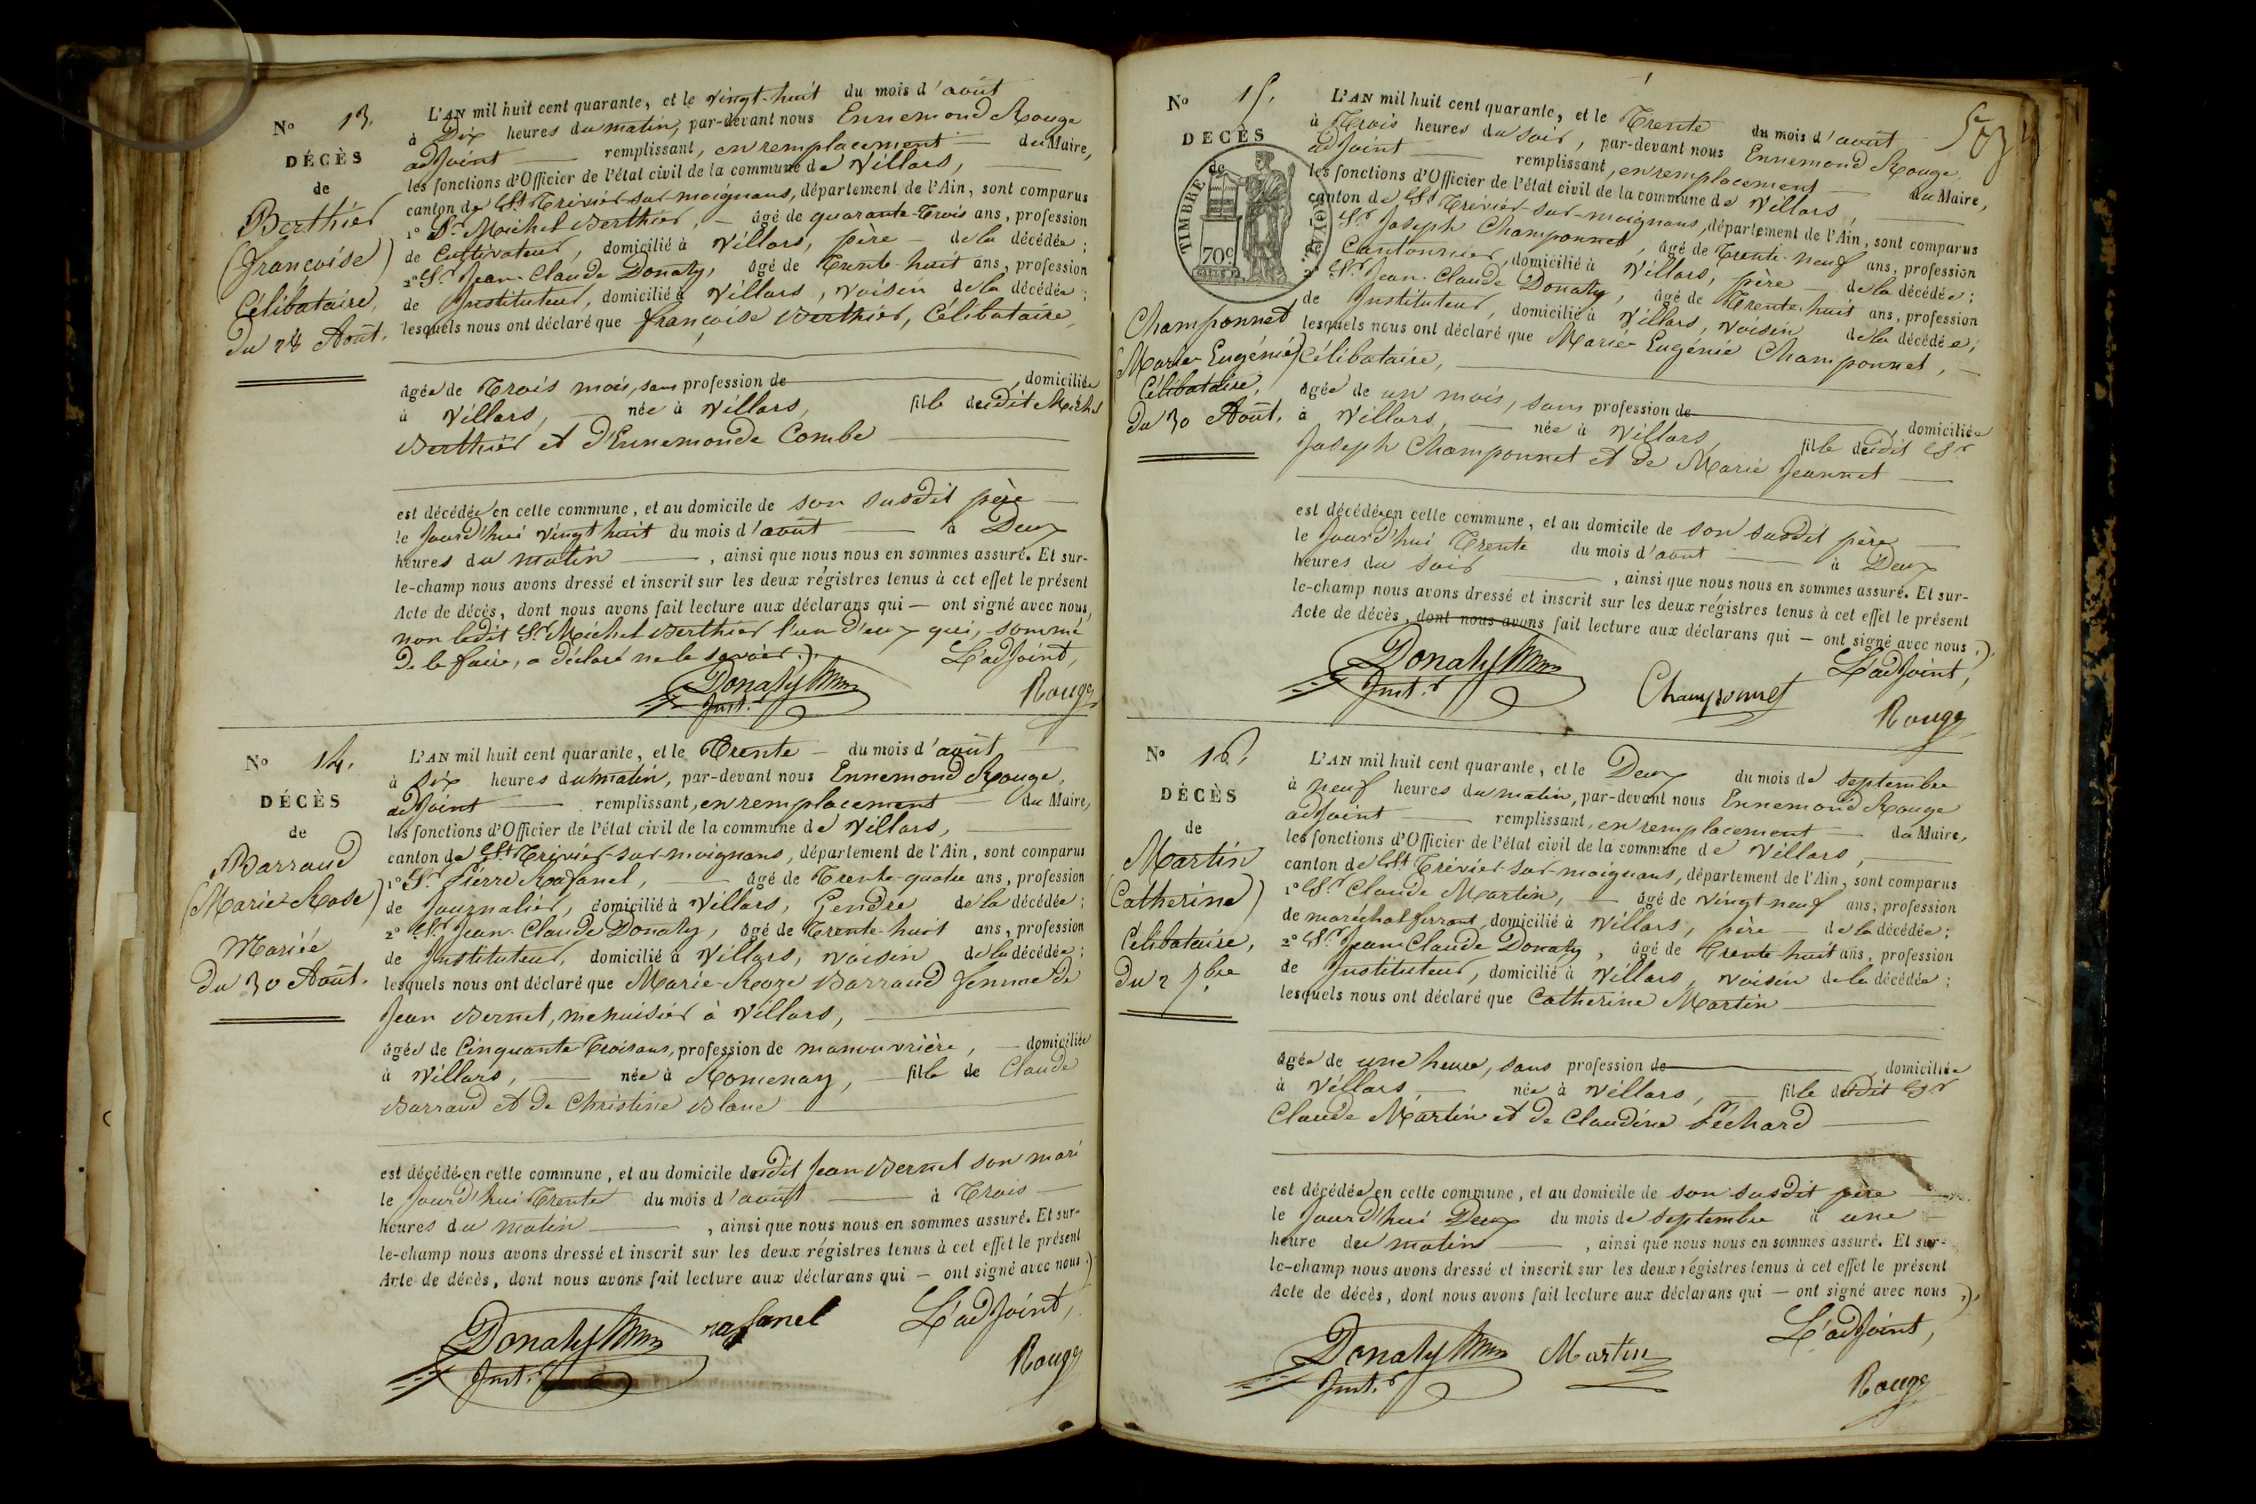 No 13.
DÉCÈS
de
Berthier
(françoise)
Célibataire,
du 28 Août.
L'AN mil huit cent quarante, et le vingt-huit du mois d'août
à Dix heures du matin, par-devant nous Ennemond Rouge
adjoint remplissant, en remplacement du Maire,
les fonctions d'Officier de l'état civil de la commune de Villars,
canton de St Trivier-sur-moignans, département de l'Ain, sont comparus
1º Sr Michel Berthier, âgé de quarante-trois ans, profession
de Cultivateur, domicilié à Villars, père de la décédée;
2º Sr Jean-Claude Donaty, âgé de Trente-huit ans, profession
de Instituteur, domicilié à Villars, voisin de la décédée;
lesquels nous ont déclaré que françoise Berthier, Célibataire,
âgée de Trois mois, sans profession de , domiciliée
à Villars, née à Villars, fille dudit Michel
Berthier et d'Ennemonde Combe
est décédée en cette commune, et au domicile de son susdit père
le jourd'hui vingt huit du mois d'août à Deux
heures du matin , ainsi que nous nous en sommes assuré. Et sur-
le-champ nous avons dressé et inscrit sur les deux régistres tenus à cet effet le présent
Acte de décès, dont nous avons fait lecture aux déclarans qui — ont signé avec nous,
non ledit Sr Michel Berthier l'un d'eux qui, sommé
de le faire, a déclaré ne le savoir.
L'adjoint,
Donaty
Inst.r
Rouge
No 14.
DÉCÈS
de
Barraud
(Marie-Rose)
Mariée
du 30 Août.
L'AN mil huit cent quarante, et le Trente du mois d'août
à Dix heures du matin, par-devant nous Ennemond Rouge,
adjoint remplissant, en remplacement du Maire,
les fonctions d'Officier de l'état civil de la commune de Villars,
canton de St Trivier-sur-moignans, département de l'Ain, sont comparus
1º Sr Pierre Rafanel, âgé de Trente-quatre ans, profession
de Journalier, domicilié à Villars, Gendre de la décédée;
2º Sr Jean-Claude Donaty, âgé de Trente-huit ans, profession
de Instituteur, domicilié à Villars, voisin de la décédée;
lesquels nous ont déclaré que Marie-Roze Barraud femme de
Jean Bernet, menuisier à Villars,
âgée de Cinquante Trois ans, profession de manouvrière, domiciliée
à Villars, née à Romenay, fille de Claude
Barraud et de Christine Blanc
est décédée en cette commune, et au domicile dudit Jean Bernet son mari
le jourd'hui Trente du mois d'août à Trois
heures du matin , ainsi que nous nous en sommes assuré. Et sur-
le-champ nous avons dressé et inscrit sur les deux régistres tenus à cet effet le présent
Acte de décès, dont nous avons fait lecture aux déclarans qui — ont signé avec nous.
Donaty rafanel L'adjoint,
Inst.r
Rouge
503
No 15.
DÉCÈS
de
TIMBRE ROYAL
70c
Champonnet
(Marie-Eugénie)
Célibataire,
du 30 Août.
L'AN mil huit cent quarante, et le Trente du mois d'août
à Trois heures du soir, par-devant nous Ennemond Rouge,
adjoint remplissant, en remplacement du Maire,
les fonctions d'Officier de l'état civil de la commune de Villars,
canton de St Trivier-sur-moignans, département de l'Ain, sont comparus
Sr Joseph Champonnet, âgé de Trente-neuf ans, profession
de Cantonnier, domicilié à Villars, père de la décédée;
2º Sr Jean-Claude Donaty, âgé de Trente-huit ans, profession
de Instituteur, domicilié à Villars, voisin de la décédée;
lesquels nous ont déclaré que Marie-Eugénie Champonnet,
Célibataire,
âgée de un mois, sans profession de , domiciliée
à Villars, née à Villars, fille dudit Sr
Joseph Champonnet et de Marie Jeannet
est décédée en cette commune, et au domicile de son susdit père
le jourd'hui Trente du mois d'août à Deux
heures du soir , ainsi que nous nous en sommes assuré. Et sur-
le-champ nous avons dressé et inscrit sur les deux régistres tenus à cet effet le présent
Acte de décès, dont nous avons fait lecture aux déclarans qui — ont signé avec nous.
Donaty L'adjoint,
Inst.r Champonnet
Rouge
No 16.
DÉCÈS
de
Martin
(Catherine)
Célibataire,
du 2 7.bre
L'AN mil huit cent quarante, et le Deux du mois de septembre
à neuf heures du matin, par-devant nous Ennemond Rouge
adjoint remplissant, en remplacement du Maire,
les fonctions d'Officier de l'état civil de la commune de Villars,
canton de St Trivier-sur-moignans, département de l'Ain, sont comparus
1º Sr Claude Martin, âgé de vingt-neuf ans, profession
de maréchal ferrant, domicilié à Villars, père de la décédée;
2º Sr Jean-Claude Donaty, âgé de Trente-huit ans, profession
de Instituteur, domicilié à Villars, voisin de la décédée;
lesquels nous ont déclaré que Catherine Martin
âgée de une heure, sans profession de domiciliée
à Villars, née à Villars, fille dudit Sr
Claude Martin et de Claudine Féchard
est décédée en cette commune, et au domicile de son susdit père
le jourd'hui Deux du mois de septembre à une
heure du matin , ainsi que nous nous en sommes assuré. Et sur-
le-champ nous avons dressé et inscrit sur les deux régistres tenus à cet effet le présent
Acte de décès, dont nous avons fait lecture aux déclarans qui — ont signé avec nous.
L'adjoint,
Donaty Martin
Inst.r
Rouge